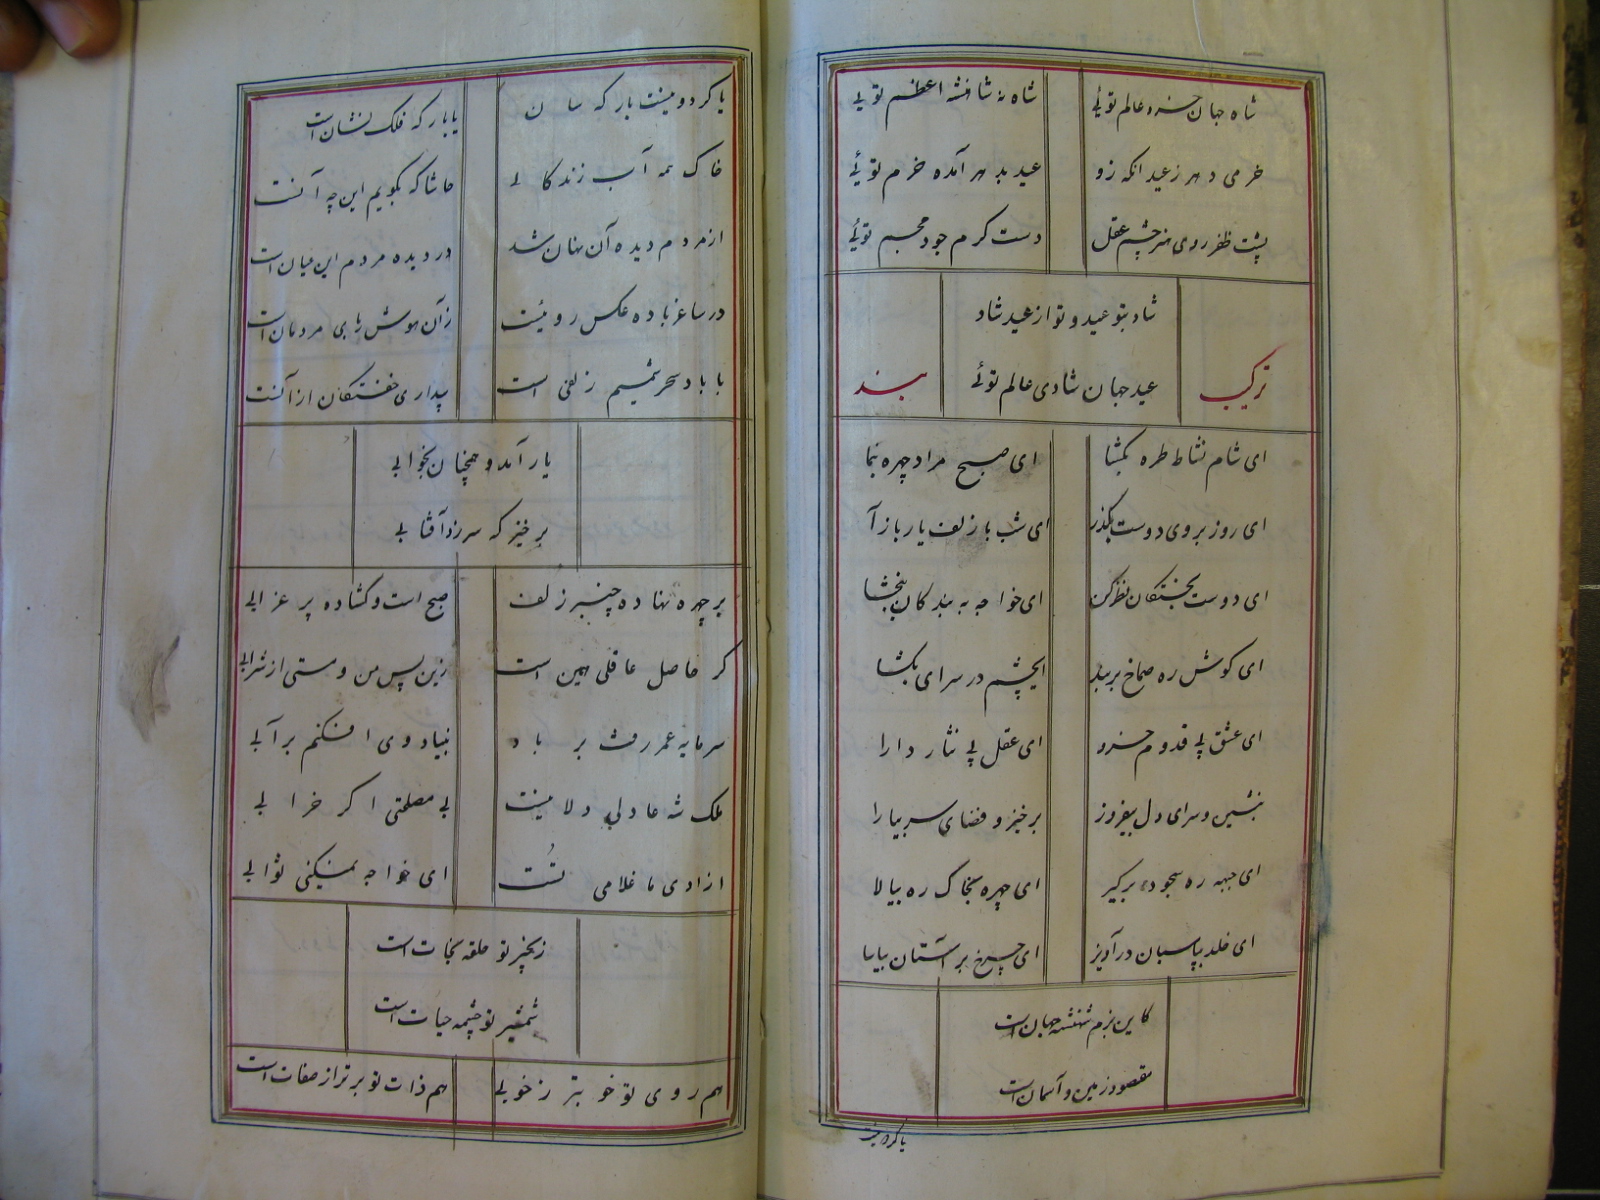 شاه جهان خسرو عالم توئی شاه نه شاهنشه اعظم توئی
خرمی دهر ز عید انکه زو عید بدهر آمده خرم توئی
پشت ظفر روی هنر چشم عقل دست کرم جود مجسم توئی
شاد بتو عید و تو از عید شاد
ترکیب عید جهان شادی عالم توئی بند
ای شام نشاط طره بگشا ای صبح مراد چهره بنما
ای روز بروی دوست بگذر ای شب باز لف یار بازآ
ای دوست بخستگان نظر کن ای خواجه به بندگان ببخشا
ای کوش ره صماخ بربند ایچشم در سرای بگشا
ای عشق پی قدوم خسرو ای عقل پی نثار دارا
بنشین و سرای دل بیفروز برخیز و فضای سر بیارا
ای جبهه ره سجود برگیر ای چهره بخاک ره بیالا
ای خلد بپاسبان درآویز ای چرخ بر آستان بیاسا
کاین بزم شهنشه جهان است
مقصود زمین و آسمان است
یا کرد و مینت
یا کرد و مینت بار که سان یا بار که فلک نشان است
خاک همه آب زندگانی حاشا که بگویم این چه آنست
از مردم دیده آن نهان شد در دیده مردم این عیان است
در ساغر باده عکس رویست زآن هوش ربای مردمان است
با باد سحر شمیم زلفی است بیداری خفتگان از آنست
یار آمد و همچنان بخوابی
برخیز که سر زد آفتابی
بر چهره نهاده چنبر زلف صبح است و گشاده پر غرابی
کر حاصل عاقلی همین است زین پس من و مستی از شرابی
سرمایه عمر رفت بر باد بنیاد وی افکنم بر آبی
ملک شه عادلی دلا نیست بی مصلحتی اگر خرابی
ازادی ما غلامی تست ای خواجه نمیکنی ثوابی
زنجیر تو حلقه نجات است
شمشیر تو چشمه حیات است
هم روی تو خوبتر ز خوبی هم ذات تو برتر از صفات است